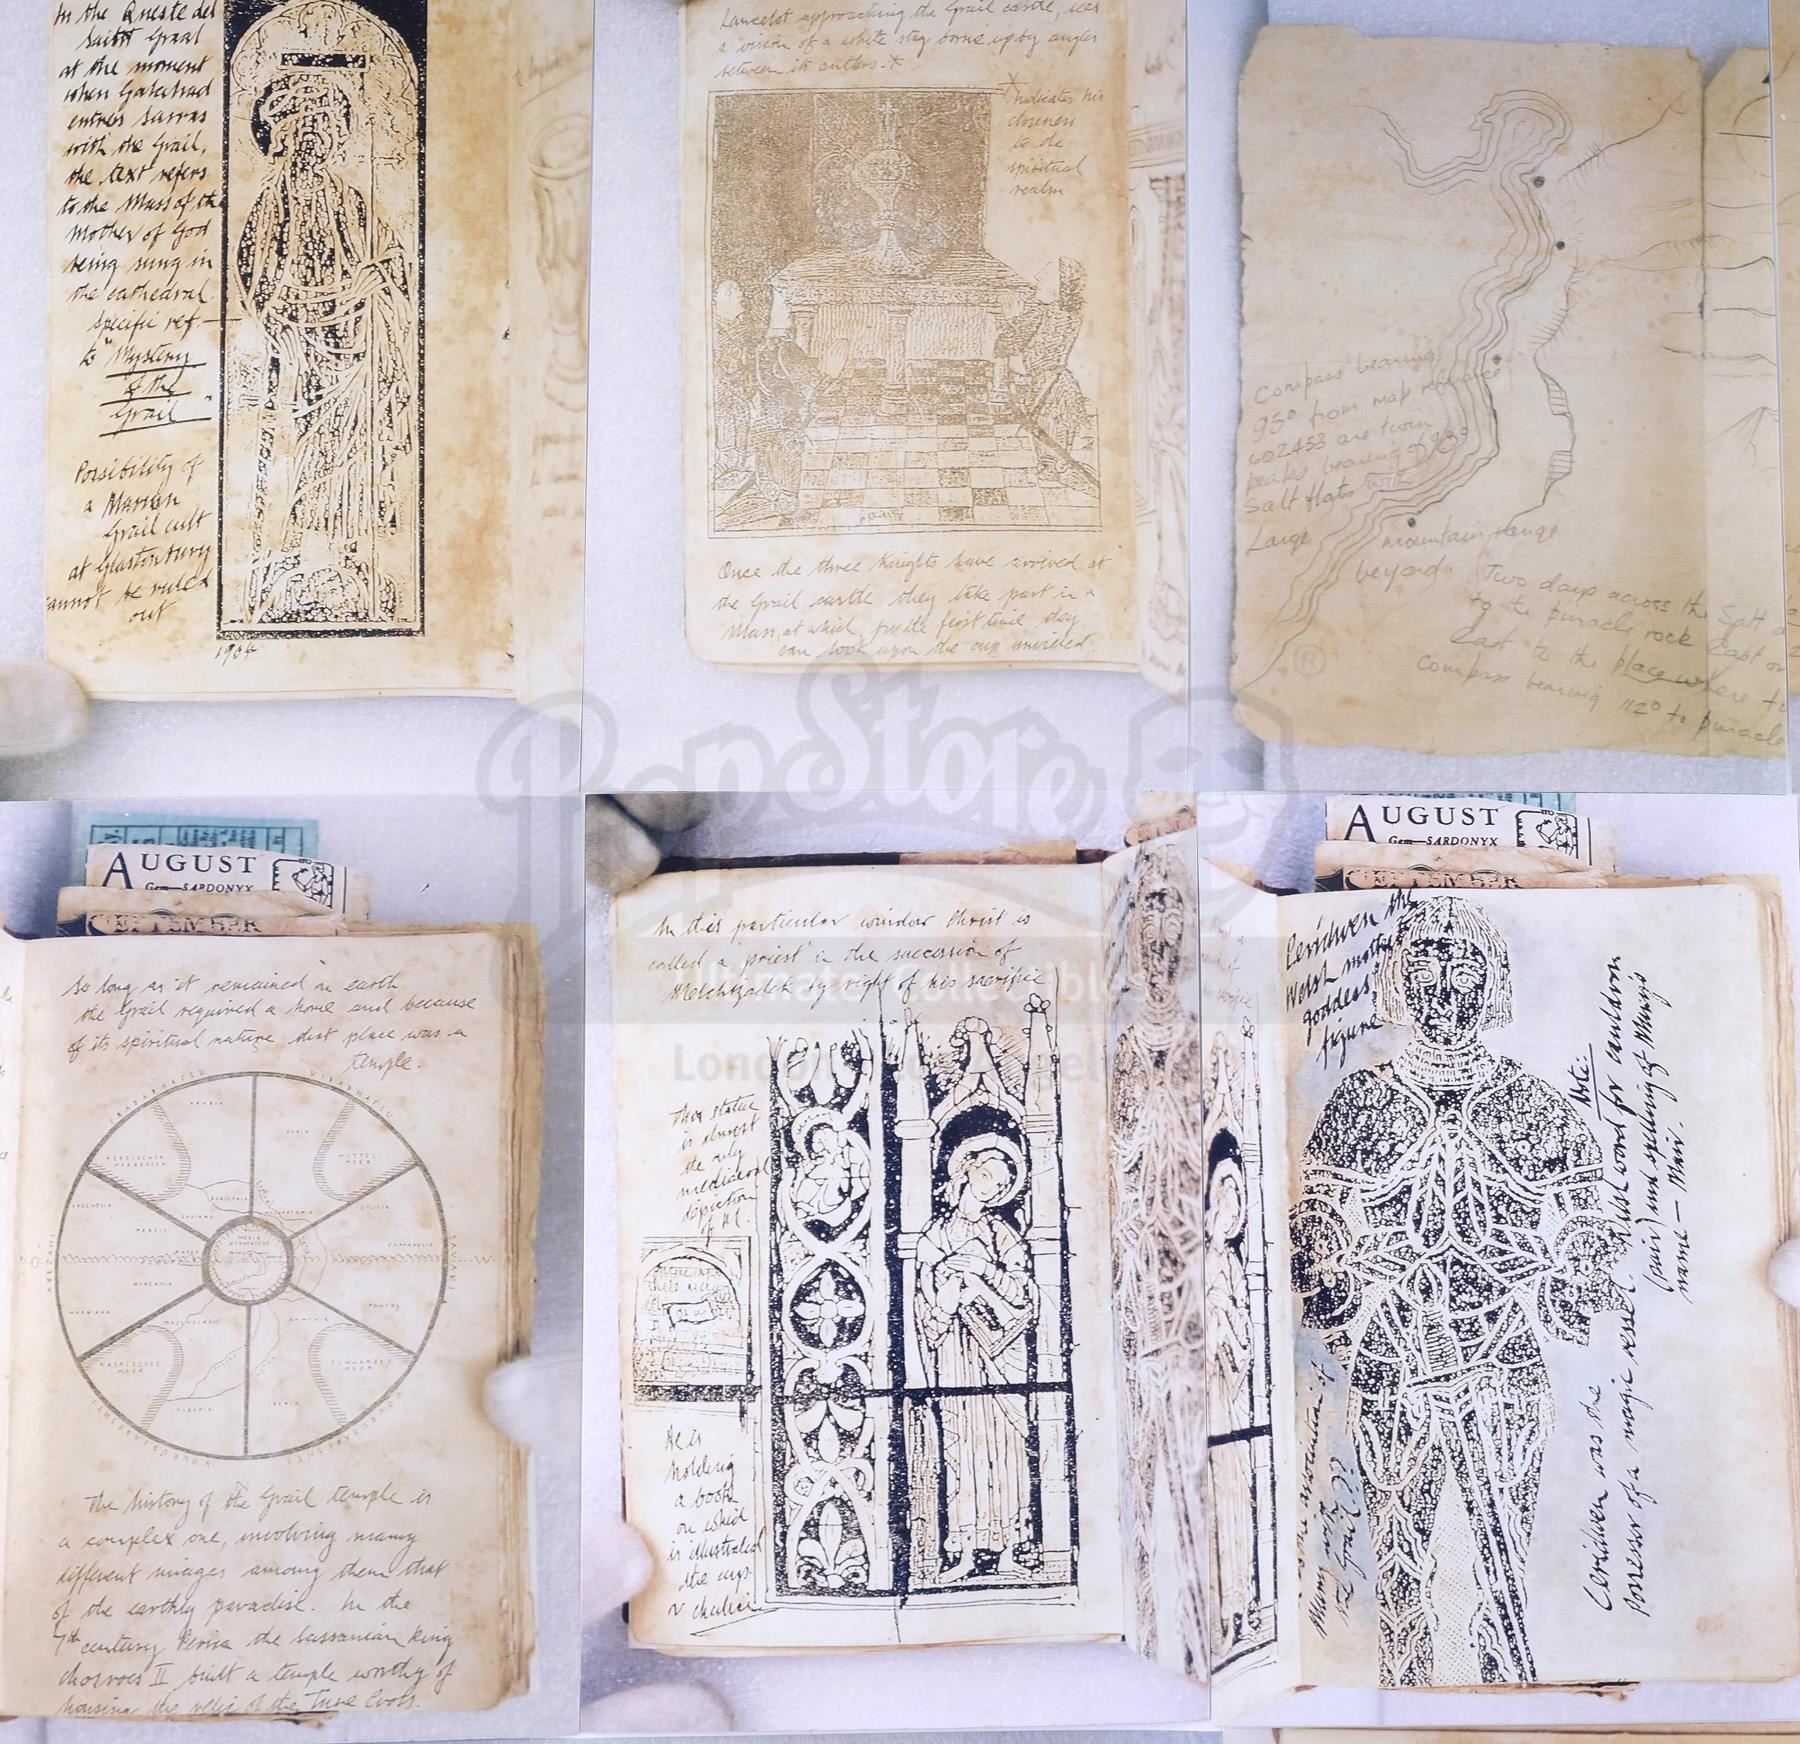 In the Queste del
Saint Graal
at the moment
when Galahad
enters Sarras
with the Grail,
the text refers
to the Mass of the
Mother of God
being sung in
the cathedral.
specific ref.
to "Mystery
of the
Grail"
Possibility of
a Marian
Grail cult
at Glastonbury
cannot be ruled
out
1904
Lancelot approaching the Grail castle, sees
a vision of a white stag borne up by angles
between its antlers.*
* Indicates his
closeness
to the
spiritual
realm
Once the three Knights have arrived at
the Grail castle they take part in a
Mass, at which, for the first time they
can look upon the cup unveiled.
Compass bearing
95° from map reference
602453 are twin
peaks bearing of
Salt flats with
Large mountain range
beyond. Two days across the Salt
to the pinacle rock East or
East to the place where
Compass bearing 112° to pinacle
PopStore
®
Ultimate Collectibles
London
AUGUST
Gem—SARDONYX
SEPTEMBER
So long as it remained in earth
the Grail required a home and because
of its spiritual nature that place was a
temple.
ARABIA
SYRIA
PERSISCHER
MEERBUSEN
MITTELL
MEER
ARACHOSIA
BABYLONIA
MESOPOTAMIA
CILICIA
PERSIS
SUSIANA
CAPPADOCIA
ARZAHI
SAVAHI
HYRCANIA
PONTOS
MARGIANA
ARMENIA
KASPISCHES
MEER
SCHWARZES
MEER
ALBANIA
IBERIA
The history of the Grail temple is
a complex one, involving many
different images among them that
of the earthly paradise. In the
7th century Persia the Sassanian King
Chosroes II built a temple worthy of
housing the relic of the True Cross.
In this particular window Christ is
called a 'priest' in the succession of
Melchizadek by right of his sacrifice
This statue
is almost
the only
mediaeval
depiction
of
He is
holding
a book
on which
is illustrated
the cup
or chalice
AUGUST
Gem—SARDONYX
SEPTEMBER
Ceridwen the
Welsh mother
goddess
figure
Note:
Welsh word for cauldron
(pair) and spelling of Mary's
name — Mair.
Ceridwen was the
Possessor of a magic vessel.
the association of
Mary with
the Grail